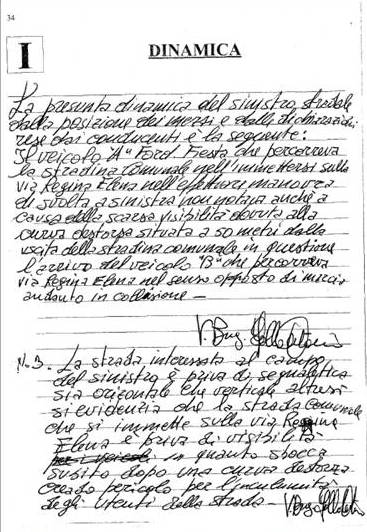 34
I
DINAMICA
La presunta dinamica del sinistro stradale
dalla posizione dei mezzi e dalle dichiarazioni
rese dai conducenti è la seguente:
Il veicolo "A" Ford Fiesta che percorreva
la stradina comunale nell'immettersi sulla
via Regina Elena nell'effettuare manovra
di svolta a sinistra non notava anche a
causa della scarsa visibilità dovuta alla
curva destorsa situata a 50 metri dalla
uscita della stradina comunale in questione
l'arrivo del veicolo "B" che percorreva
via Regina Elena nel senso opposto di marcia
andanto in collisione –
V. Brig.
N.B. La strada interessata al campo
del sinistro è priva di segnaletica
sia orizontale che verticale altresì
si evidenzia che la strada comunale
che si immette sulla via Regina
Elena è priva di visibilità
in quanto sbocca
subito dopo una curva destorsa
creado pericolo per l'incolumità
degli utenti della strada – V. Brig.